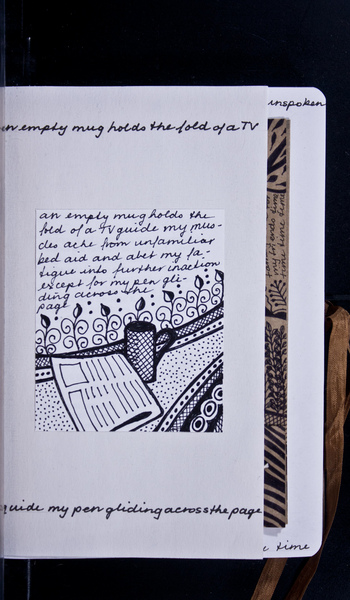 unspoken
an empty mug holds the fold of a TV
an empty mug holds the
fold of a TV guide my mus-
cles ache from unfamiliar
bed aid and abet my fa-
tigue into further inaction
except for my pen gli-
ding across the
page
my friends time
time time time
guide my pen gliding across the page
time